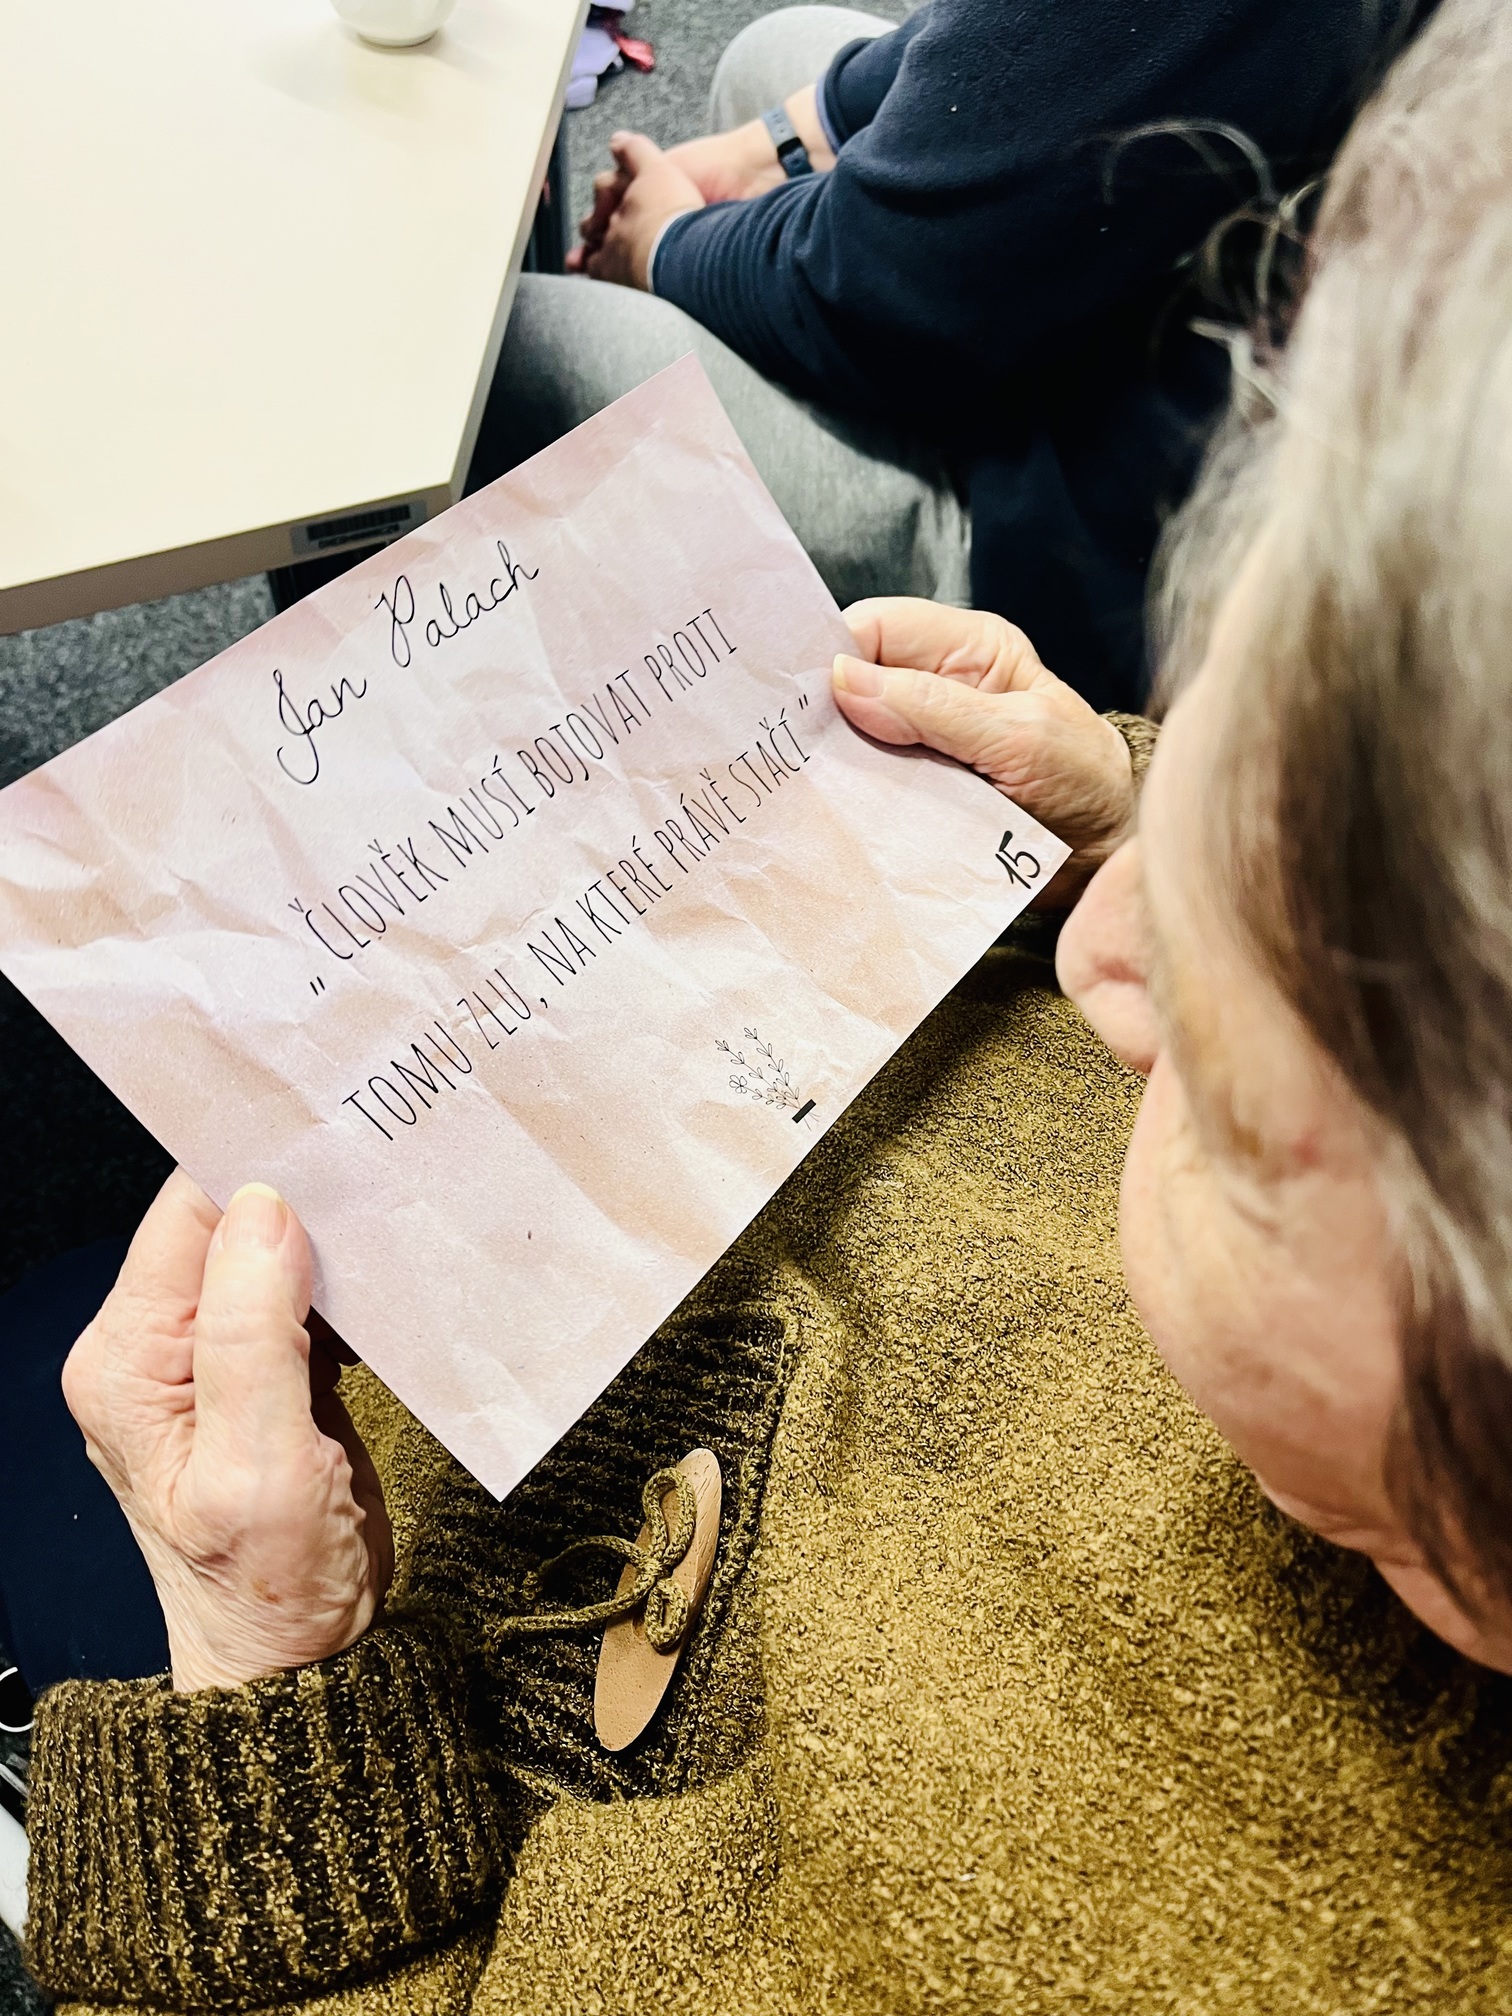 Jan Palach
„ČLOVĚK MUSÍ BOJOVAT PROTI
TOMU ZLU, NA KTERÉ PRÁVĚ STAČÍ"
15